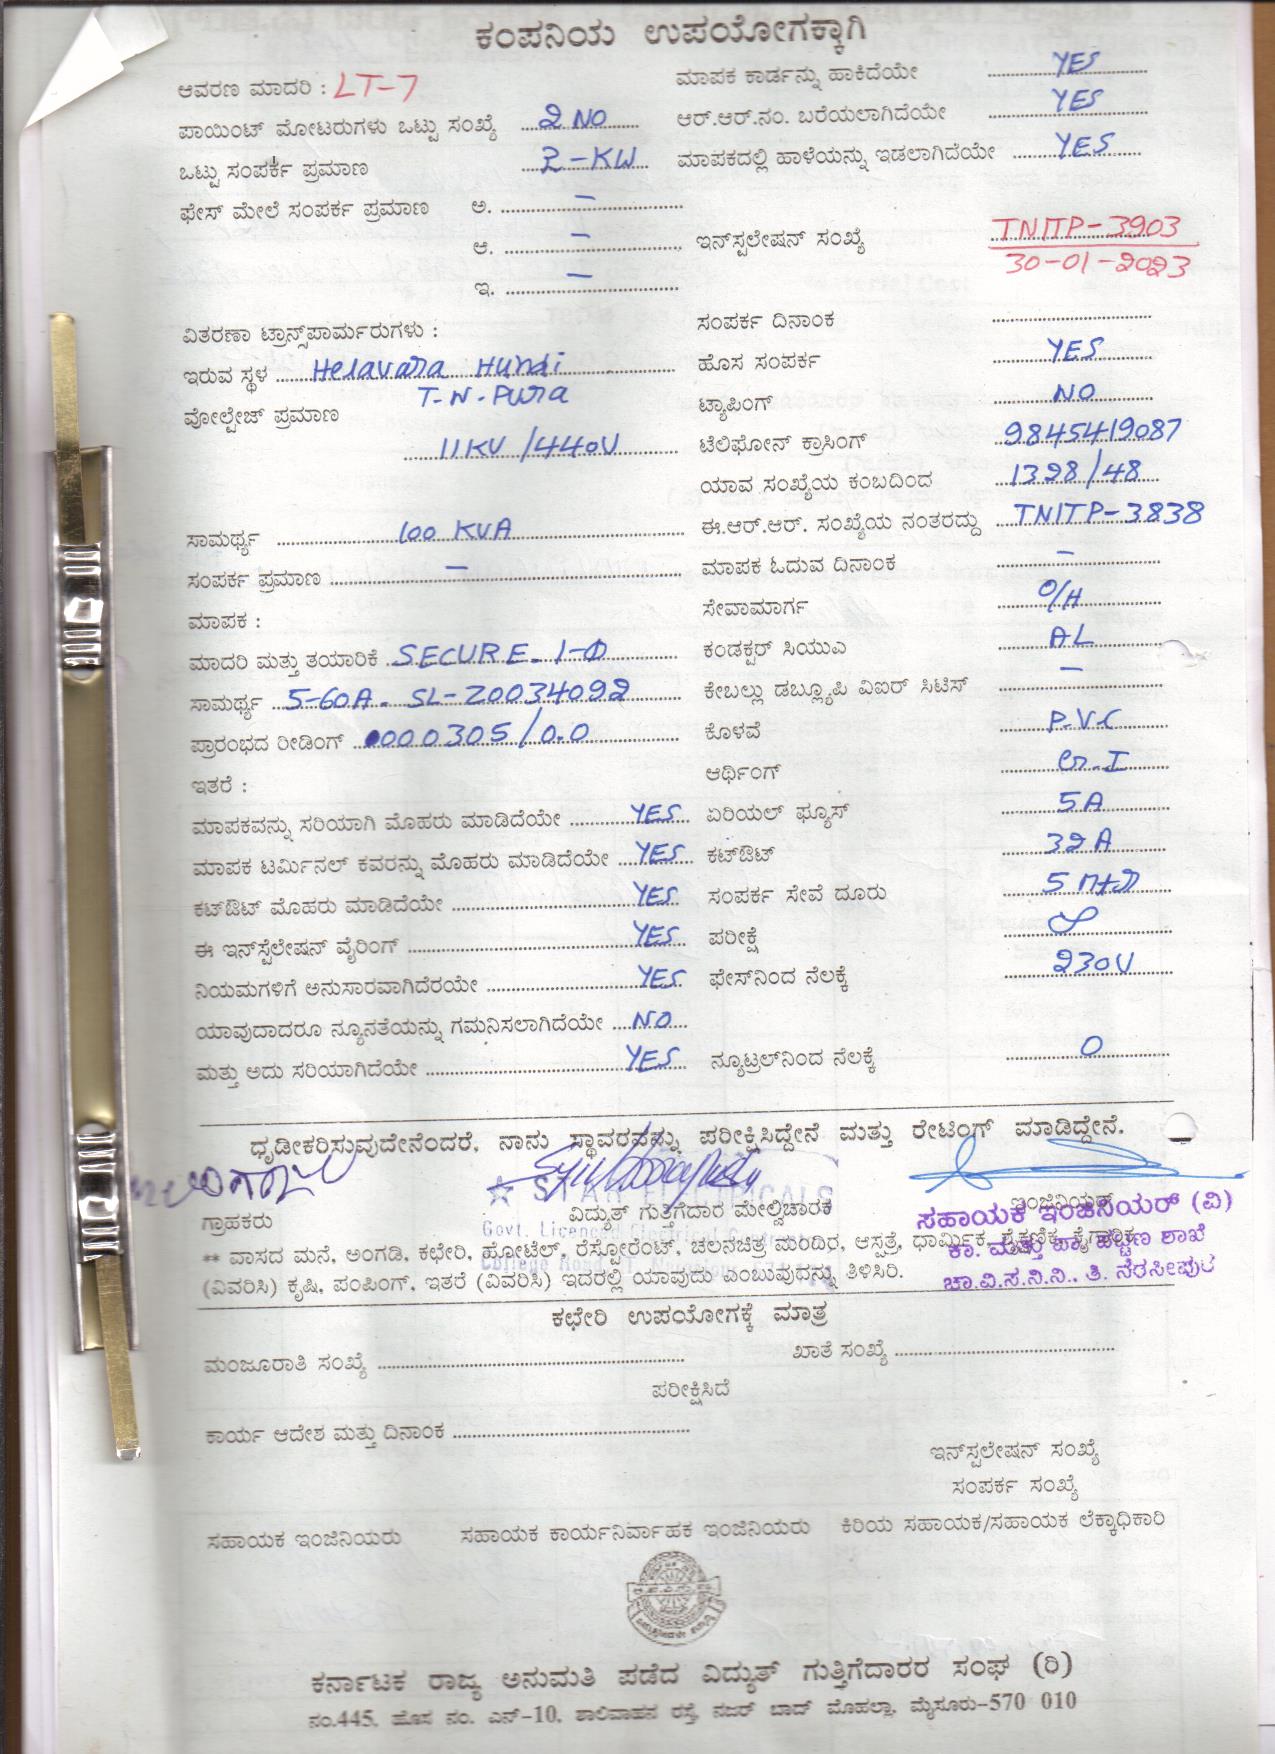 ಕಂಪನಿಯ ಉಪಯೋಗಕ್ಕಾಗಿ
ಆವರಣ ಮಾದರಿ : LT-7
ಮಾಪಕ ಕಾರ್ಡನ್ನು ಹಾಕಿದೆಯೇ YES
ಪಾಯಿಂಟ್ ಮೋಟರುಗಳು ಒಟ್ಟು ಸಂಖ್ಯೆ 2 NO
ಆರ್.ಆರ್.ನಂ. ಬರೆಯಲಾಗಿದೆಯೇ YES
ಒಟ್ಟು ಸಂಪರ್ಕ ಪ್ರಮಾಣ 2-KW
ಮಾಪಕದಲ್ಲಿ ಹಾಳೆಯನ್ನು ಇಡಲಾಗಿದೆಯೇ YES
ಫೇಸ್ ಮೇಲೆ ಸಂಪರ್ಕ ಪ್ರಮಾಣ ಅ. –
ಆ. –
ಇನ್‌ಸ್ಪಲೇಷನ್ ಸಂಖ್ಯೆ TNITP-3903
30-01-2023
ಇ. –
ವಿತರಣಾ ಟ್ರಾನ್ಸ್‌ಪಾರ್ಮರುಗಳು :
ಸಂಪರ್ಕ ದಿನಾಂಕ
ಇರುವ ಸ್ಥಳ Helavara Hundi
T-N-Pura
ಹೊಸ ಸಂಪರ್ಕ YES
ವೋಲ್ಟೇಜ್ ಪ್ರಮಾಣ
11KV/440V
ಟ್ಯಾಪಿಂಗ್ NO
ಟೆಲಿಫೋನ್ ಕ್ರಾಸಿಂಗ್ 9845419087
ಯಾವ ಸಂಖ್ಯೆಯ ಕಂಬದಿಂದ 1328/48
ಸಾಮರ್ಥ್ಯ 100 KVA
ಈ.ಆರ್.ಆರ್. ಸಂಖ್ಯೆಯ ನಂತರದ್ದು TNITP-3838
ಸಂಪರ್ಕ ಪ್ರಮಾಣ –
ಮಾಪಕ ಓದುವ ದಿನಾಂಕ –
ಮಾಪಕ :
ಸೇವಾಮಾರ್ಗ O/H
ಮಾದರಿ ಮತ್ತು ತಯಾರಿಕೆ SECURE-1-Φ
ಕಂಡಕ್ಟರ್ ಸಿಯುವಿ AL
ಸಾಮರ್ಥ್ಯ 5-60A. SL-20034092
ಕೇಬಲ್ಲು ಡಬ್ಲ್ಯೂಪಿ ವಿಐರ್ ಸಿಟಿಸ್ –
ಪ್ರಾರಂಭದ ರೀಡಿಂಗ್ 0000305/0.0
ಕೊಳವೆ P.V.C
ಇತರೆ :
ಆರ್ಥಿಂಗ್ G.I
ಮಾಪಕವನ್ನು ಸರಿಯಾಗಿ ಮೊಹರು ಮಾಡಿದೆಯೇ YES
ಏರಿಯಲ್ ಫ್ಯೂಸ್ 5A
ಮಾಪಕ ಟರ್ಮಿನಲ್ ಕವರನ್ನು ಮೊಹರು ಮಾಡಿದೆಯೇ YES
ಕಟ್‌ಔಟ್ 32A
ಕಟ್‌ಔಟ್ ಮೊಹರು ಮಾಡಿದೆಯೇ YES
ಸಂಪರ್ಕ ಸೇವೆ ದೂರು 5
ಈ ಇನ್‌ಸ್ಪೆಲೇಷನ್ ವೈರಿಂಗ್ YES
ಪರೀಕ್ಷೆ
ನಿಯಮಗಳಿಗೆ ಅನುಸಾರವಾಗಿದೆರಯೇ YES
ಫೇಸ್‌ನಿಂದ ನೆಲಕ್ಕೆ 230V
ಯಾವುದಾದರೂ ನ್ಯೂನತೆಯನ್ನು ಗಮನಿಸಲಾಗಿದೆಯೇ NO
ಮತ್ತು ಅದು ಸರಿಯಾಗಿದೆಯೇ YES
ನ್ಯೂಟ್ರಲ್‌ನಿಂದ ನೆಲಕ್ಕೆ 0
ಧೃಡೀಕರಿಸುವುದೇನೆಂದರೆ, ನಾನು ಸ್ಥಾವರವನ್ನು ಪರೀಕ್ಷಿಸಿದ್ದೇನೆ ಮತ್ತು ರೇಟಿಂಗ್ ಮಾಡಿದ್ದೇನೆ.
STAR ELECTRICALS
ಗ್ರಾಹಕರು
ವಿದ್ಯುತ್ ಗುತ್ತಿಗೆದಾರ ಮೇಲ್ವಿಚಾರಕ
ಇಂಜಿನಿಯರ್
ಸಹಾಯಕ ಇಂಜಿನಿಯರ್ (ವಿ)
ಕಾ. ಮತ್ತು ಪಾ. ಪಟ್ಟಣ ಶಾಖೆ
ಚಾ.ವಿ.ಸ.ನಿ.ನಿ., ತಿ. ನರಸೀಪುರ
** ವಾಸದ ಮನೆ, ಅಂಗಡಿ, ಕಛೇರಿ, ಹೋಟೆಲ್, ರೆಸ್ಟೋರೆಂಟ್, ಚಲನಚಿತ್ರ ಮಂದಿರ, ಆಸ್ಪತ್ರೆ, ಧಾರ್ಮಿಕ, ಶೈಕ್ಷಣಿಕ, ಕೈಗಾರಿಕ
(ವಿವರಿಸಿ) ಕೃಷಿ, ಪಂಪಿಂಗ್, ಇತರೆ (ವಿವರಿಸಿ) ಇದರಲ್ಲಿ ಯಾವುದು ಎಂಬುವುದನ್ನು ತಿಳಿಸಿರಿ.
ಕಛೇರಿ ಉಪಯೋಗಕ್ಕೆ ಮಾತ್ರ
ಮಂಜೂರಾತಿ ಸಂಖ್ಯೆ
ಖಾತೆ ಸಂಖ್ಯೆ
ಪರೀಕ್ಷಿಸಿದೆ
ಕಾರ್ಯ ಆದೇಶ ಮತ್ತು ದಿನಾಂಕ
ಇನ್‌ಸ್ಪಲೇಷನ್ ಸಂಖ್ಯೆ
ಸಂಪರ್ಕ ಸಂಖ್ಯೆ
ಸಹಾಯಕ ಇಂಜಿನಿಯರು
ಸಹಾಯಕ ಕಾರ್ಯನಿರ್ವಾಹಕ ಇಂಜಿನಿಯರು
ಕಿರಿಯ ಸಹಾಯಕ/ಸಹಾಯಕ ಲೆಕ್ಕಾಧಿಕಾರಿ
ಕರ್ನಾಟಕ ರಾಜ್ಯ ಅನುಮತಿ ಪಡೆದ ವಿದ್ಯುತ್ ಗುತ್ತಿಗೆದಾರರ ಸಂಘ (ರಿ)
ನಂ.445, ಹೊಸ ನಂ. ಎನ್-10, ಶಾಲಿವಾಹನ ರಸ್ತೆ, ನಜರ್ ಬಾದ್ ಮೊಹಲ್ಲಾ, ಮೈಸೂರು-570 010